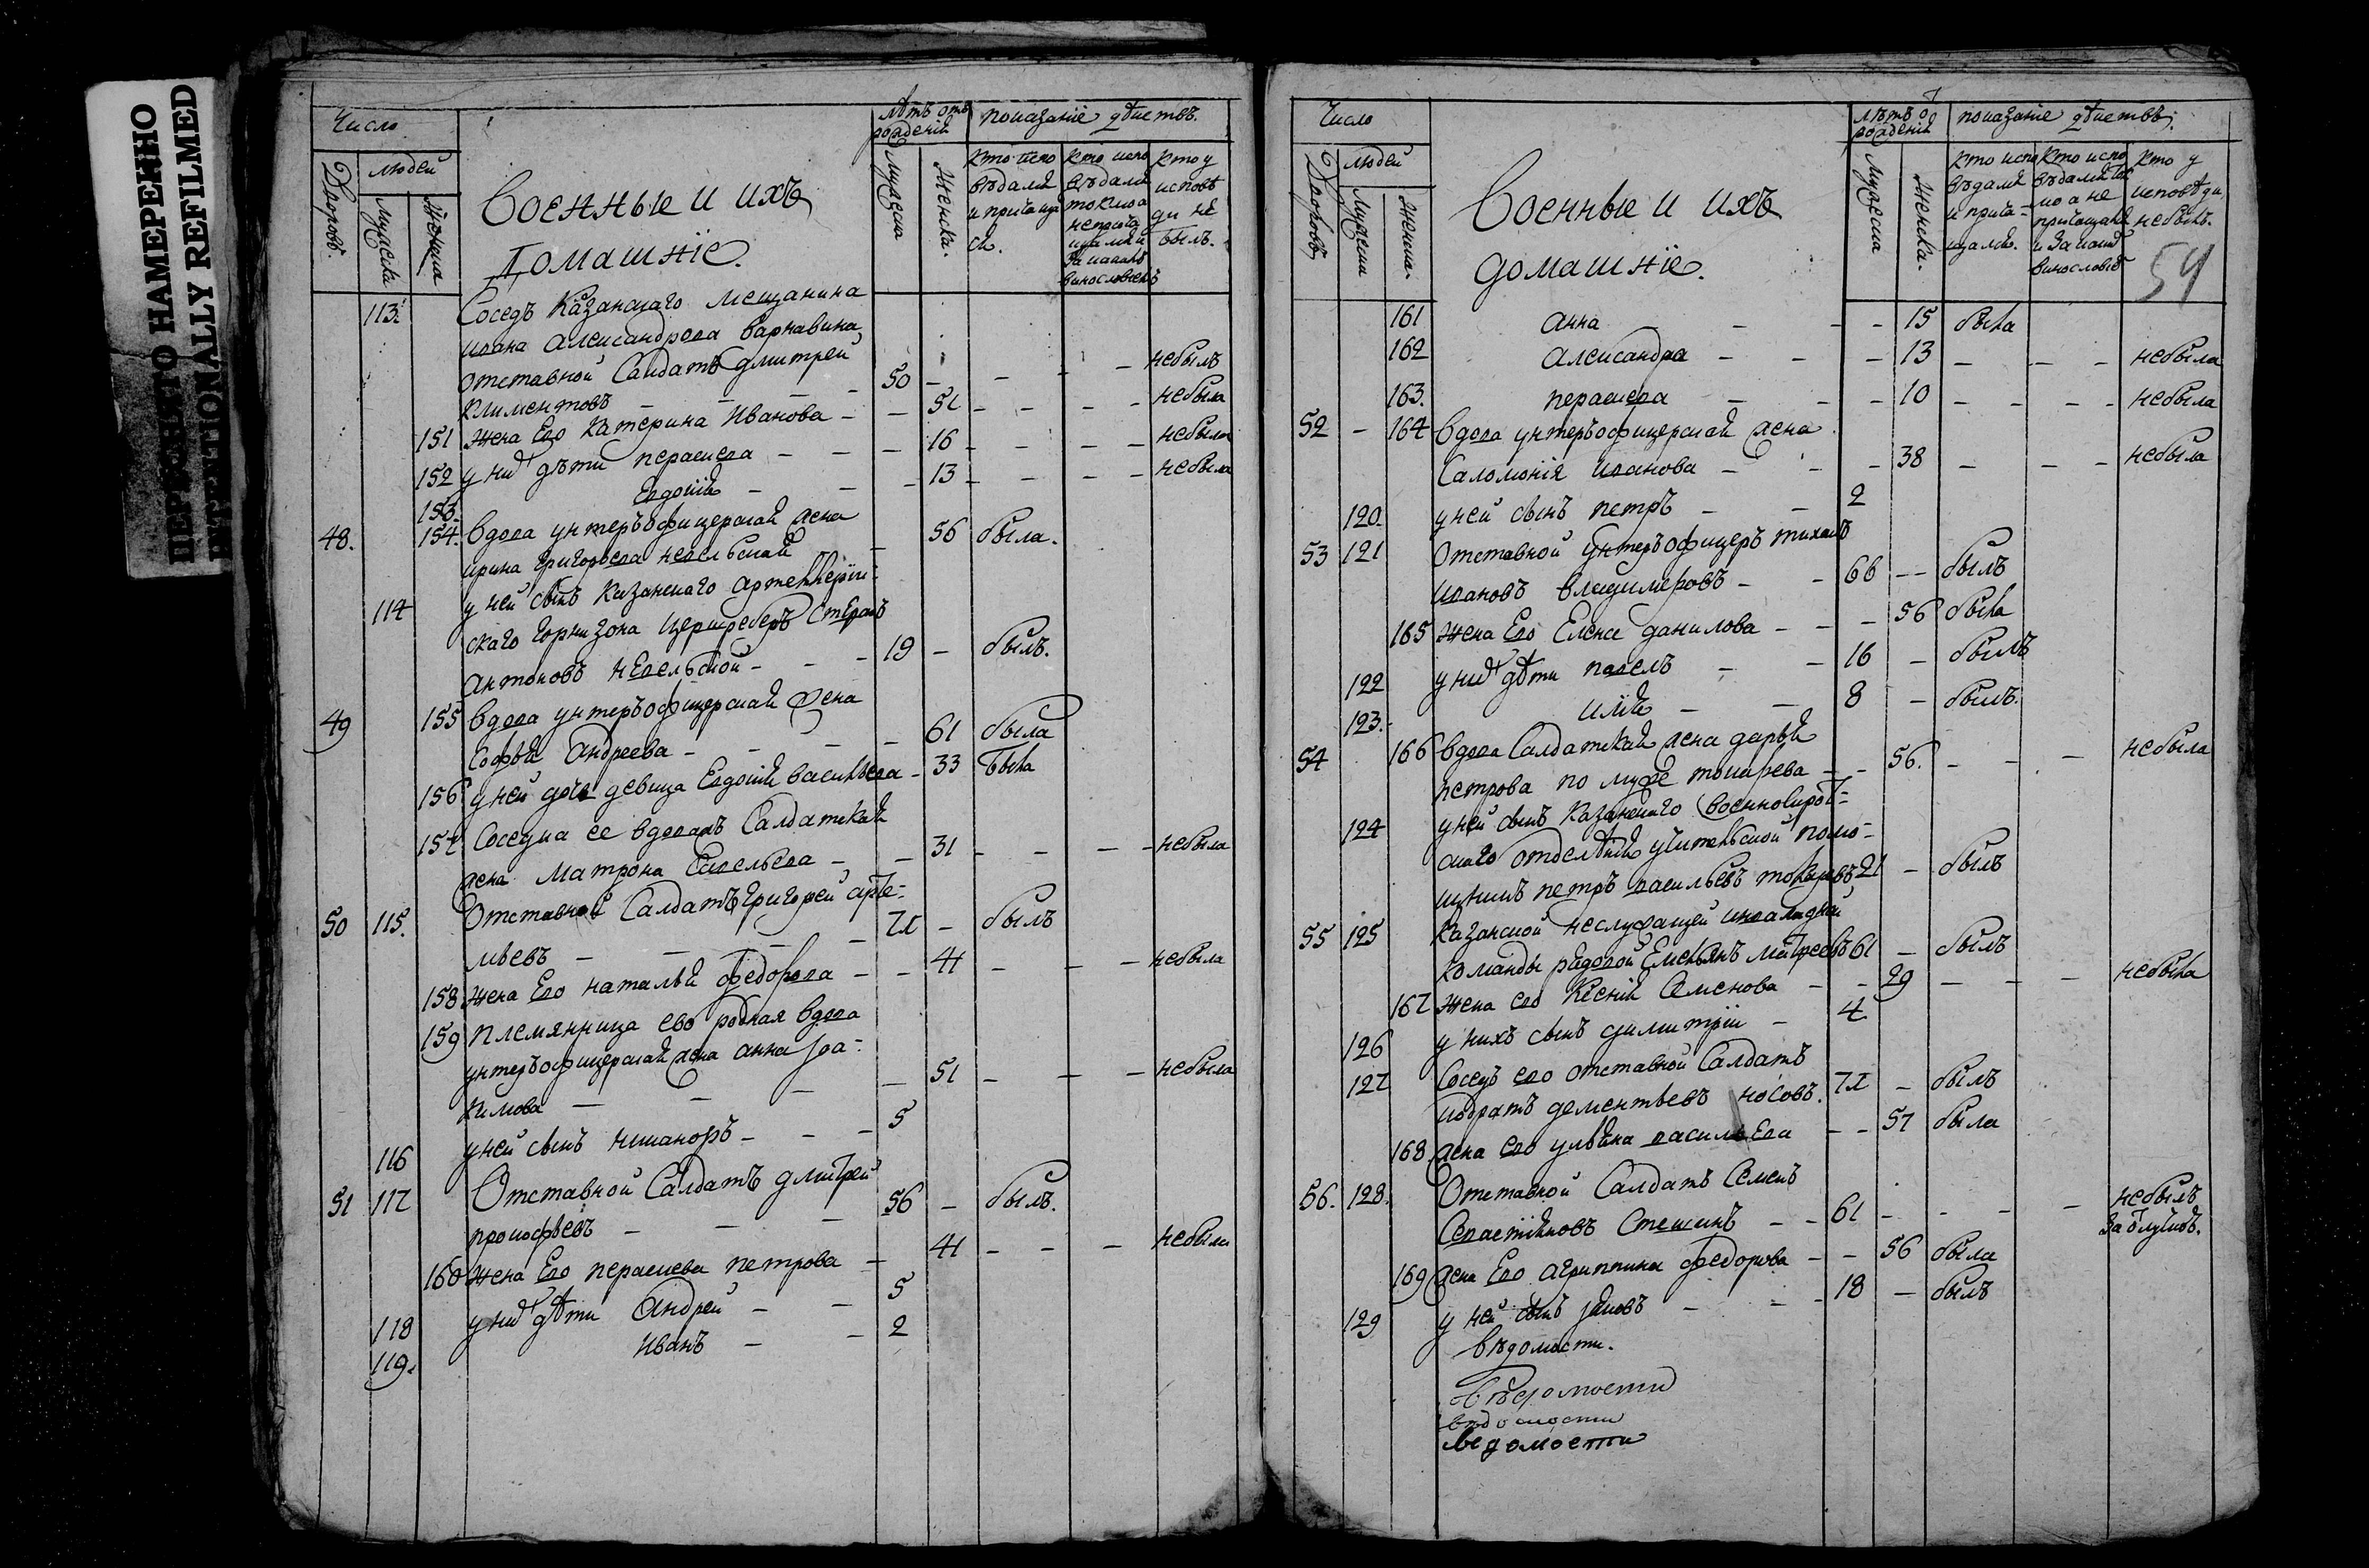 ПЕРЕСНЯТО НАМЕРЕННО
INTENTIONALLY REFILMED
Число
лѣтъ отъ рожденій
показаніе дѣиствъ.
Дворовъ.
людей
Мужеска
Женска
Военные и ихъ
Домашніе.
Мужеска
Женска.
кто испо
вѣдалис
и причаща
ся.
кто испо
вѣдалис
токмо а
непричa
щалис
За какимъ
винословіемъ
кто у
исповѣ
ди не
былъ.
113. Соседъ Казанскаго мещанина
ивана александрова варнавина
отставной Салдатъ дмитрей
Климентовъ - - - 50 - - - - небылъ
151 Жена Ево Катерина Иванова - - 51 - - - - небыла
152 у них дѣти параскева - - - 16 - - - - небыла
153. Евдокия - - - 13 - - - - небыла
48. 154. Вдова унтеръофицерская жена
ирина григорьева невельская - 56 была.
114 у ней сынъ казанского артеллерїи-
скаго горнизона Стефанъ
антоновъ невельской - - - 19 - былъ.
49 155 Вдова унтеръофицерская жена
Софья Андреева - - - - 61 была
156 у ней дочь девица Евдокия васильева - 33 была
157 Соседка ее вдова Салдатская
жена Матрона Савельева - - 31 - - - - небыла
50 115. Отставной Салдатъ григорей арте-
мьевъ - - - - 71 - былъ
158 Жена Ево наталья федорова - - 41 - - - небыла
159 племянница ево родная вдова
унтерьофицерская жена анна Іоа-
кимова - - - - 51 - - - небыла
116 у ней сынъ никаноръ - - - 5
51 117 Отставной Салдатъ дмитрей
прокофьевъ - - - 56 - былъ.
160 Жена Ево параскева петрова - 41 - - - небыла
118 у них дѣти Андрей - - 5
119. Иванъ - - 2
Число
лѣтъ о рожденій
показаніе дѣиствъ.
Дворовъ
людей
Мужеска
Женска.
Военные и ихъ
домашніе.
Мужеска
Женска.
кто испо
вѣдалис
и прича-
щалис.
кто испо
вѣдалис ток
мо а не
причащалис
и за каким
винословіем
кто у
исповѣди
небылъ.
54
161 Анна - - - 15 была
162 Александра - - - 13 - - - небыла
163. параскева - - - 10 - - - - небыла
52 - 164 Вдова унтеръофицерская жена
Саломонія иванова - - - 38 - - - небыла
120. у ней сынъ петръ - - 2
53 121 Отставной Унтеръофицеръ михаилъ
ивановъ владимеровъ - - 66 - - былъ
165 Жена Ево Елена данилова - - - 56 была
122 у них дѣти павелъ - - 16 - былъ
123. илия - - 8 - былъ.
54 166 Вдова Салдатская жена дарья
петрова по муже токарева - - 56. - - - небыла
124 у ней сынъ казанского военносирот-
скаго отделѣния учительской помо-
щникъ петръ васильевъ токаревъ 21 - былъ
55 125 Казанской неслужащей инвалидной
команды рядовой Емельянъ 61 - былъ
167 Жена ево Ксения Семенова - - 29 - - - небыла
126 у нихъ сынъ димитрїи - 4
127 Соседъ ево отставной Салдатъ
дементьевъ носовъ. 71 - былъ
168 жена ево ульяна васильева - - 57 была
56. 128. Отставной Салдатъ Семенъ
Севастїяновъ - - 61 - - - - небылъ
За отлучкой.
169 жена Ево агрипина федорова - - 56 была
129 у ней сынъ яковъ - - - 18 - былъ
вѣдомости.
вѣдомости
вѣдомости
ведомости